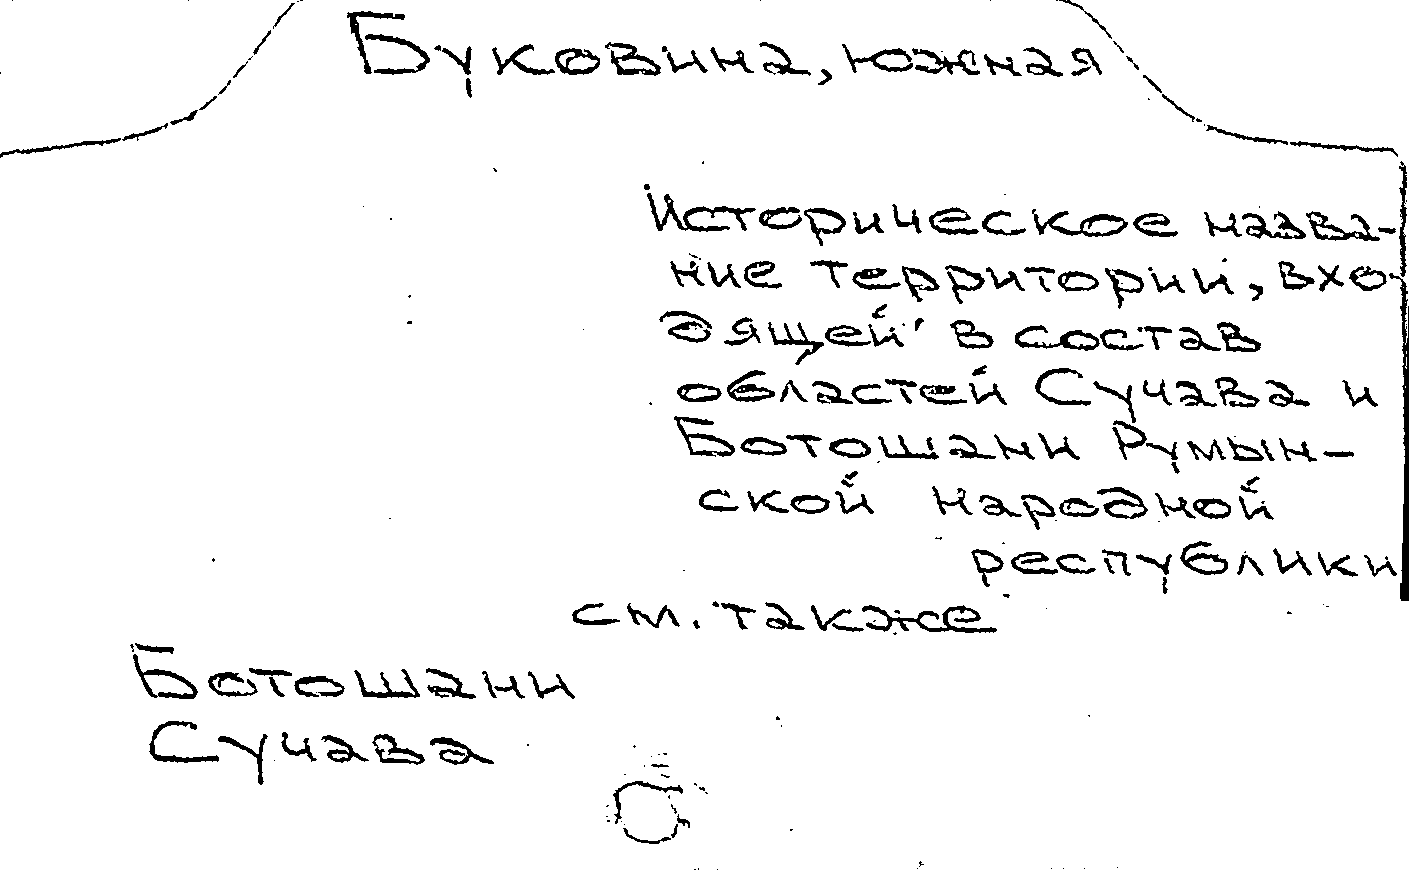 Буковина, южная
Историческое назва-
ние территории, вхо-
дящей в состав
областей Сучава и
Ботошани Румын-
ской народной
республики
см. также
Ботошани
Сучава